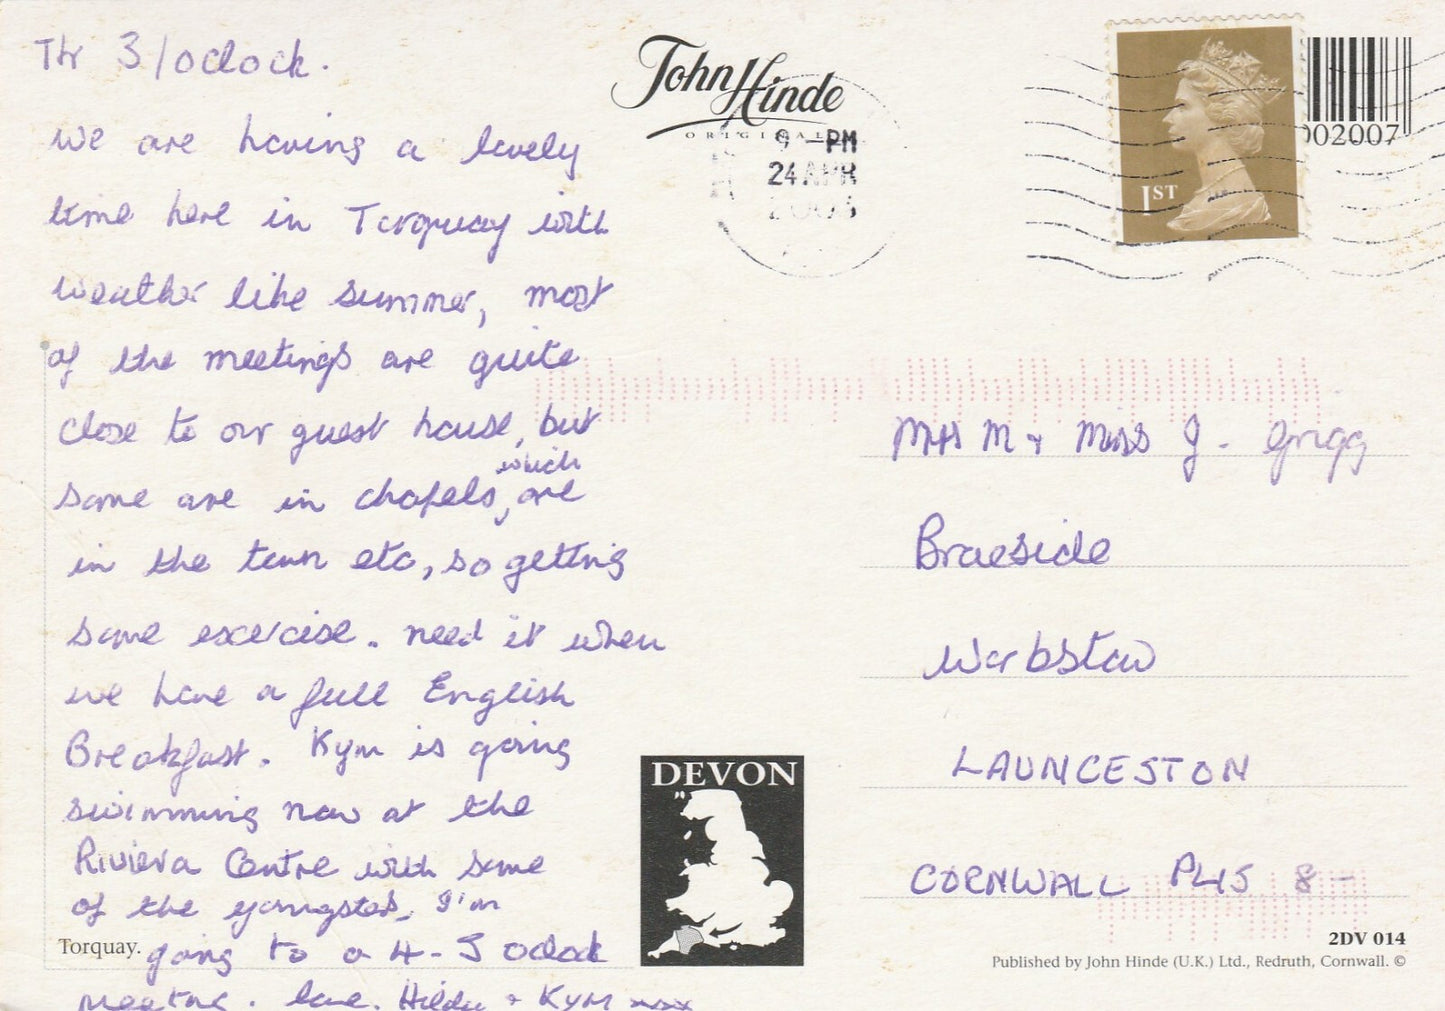 Thr 3/oclock.
we are having a lovely
time here in Torquay with
weather like summer, most
of the meetings are quite
close to our guest house, but
some are in chapels, which are
in the town etc, so getting
some exercise. need it when
we have a full English
Breakfast. Kym is going
swimming now at the
Riviera Centre with some
of the youngsters. I'm
going to a 4-5 oclock
meeting. love. Hilda + Kym xxx
Torquay.
John Hinde
ORIGINAL
9 -PM
24 APR
1ST
002007
Mrs M + Miss J. Grigg
Braeside
Warbstow
LAUNCESTON
CORNWALL PL15 8-
DEVON
2DV 014
Published by John Hinde (U.K.) Ltd., Redruth, Cornwall. ©